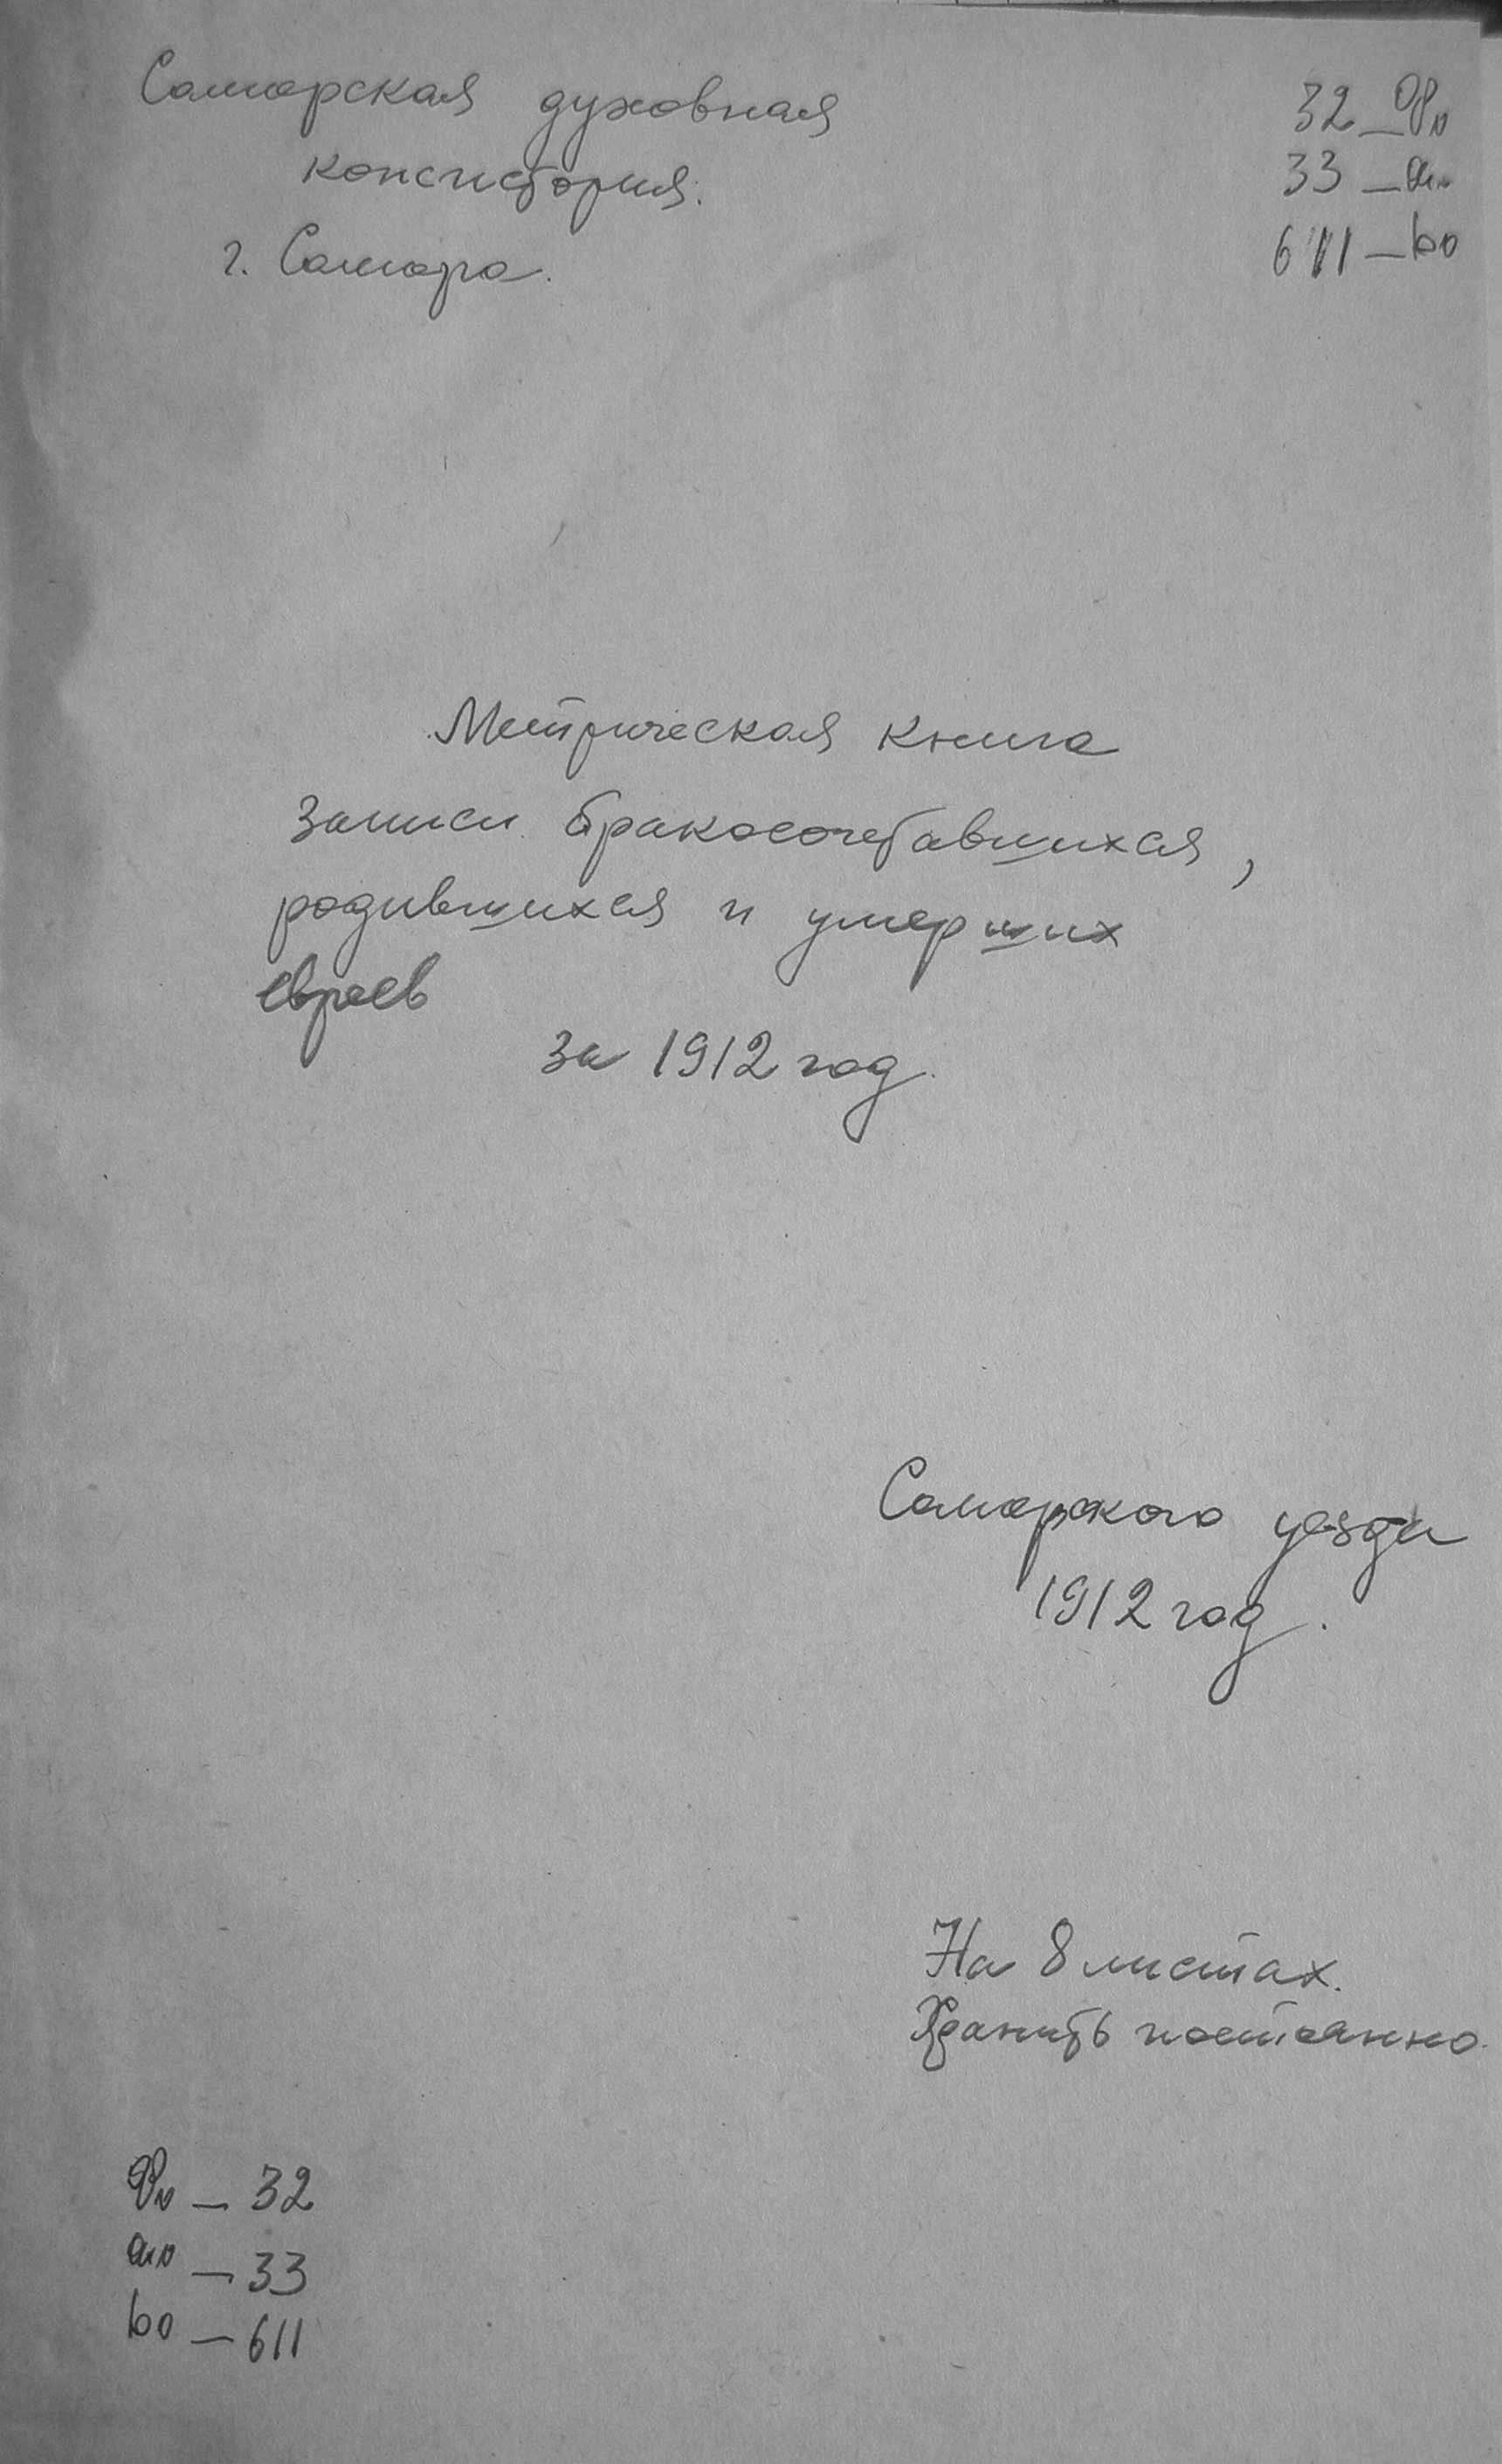 Самарская духовная
консистория.
г. Самара.
32 —
33 —
611 —
Метрическая книга
записи бракосочетавшихся,
родившихся и умерших
евреев
за 1912 год.
Самарского уезда
1912 год.
На 8 листах.
Хранить постоянно.
— 32
— 33
— 611